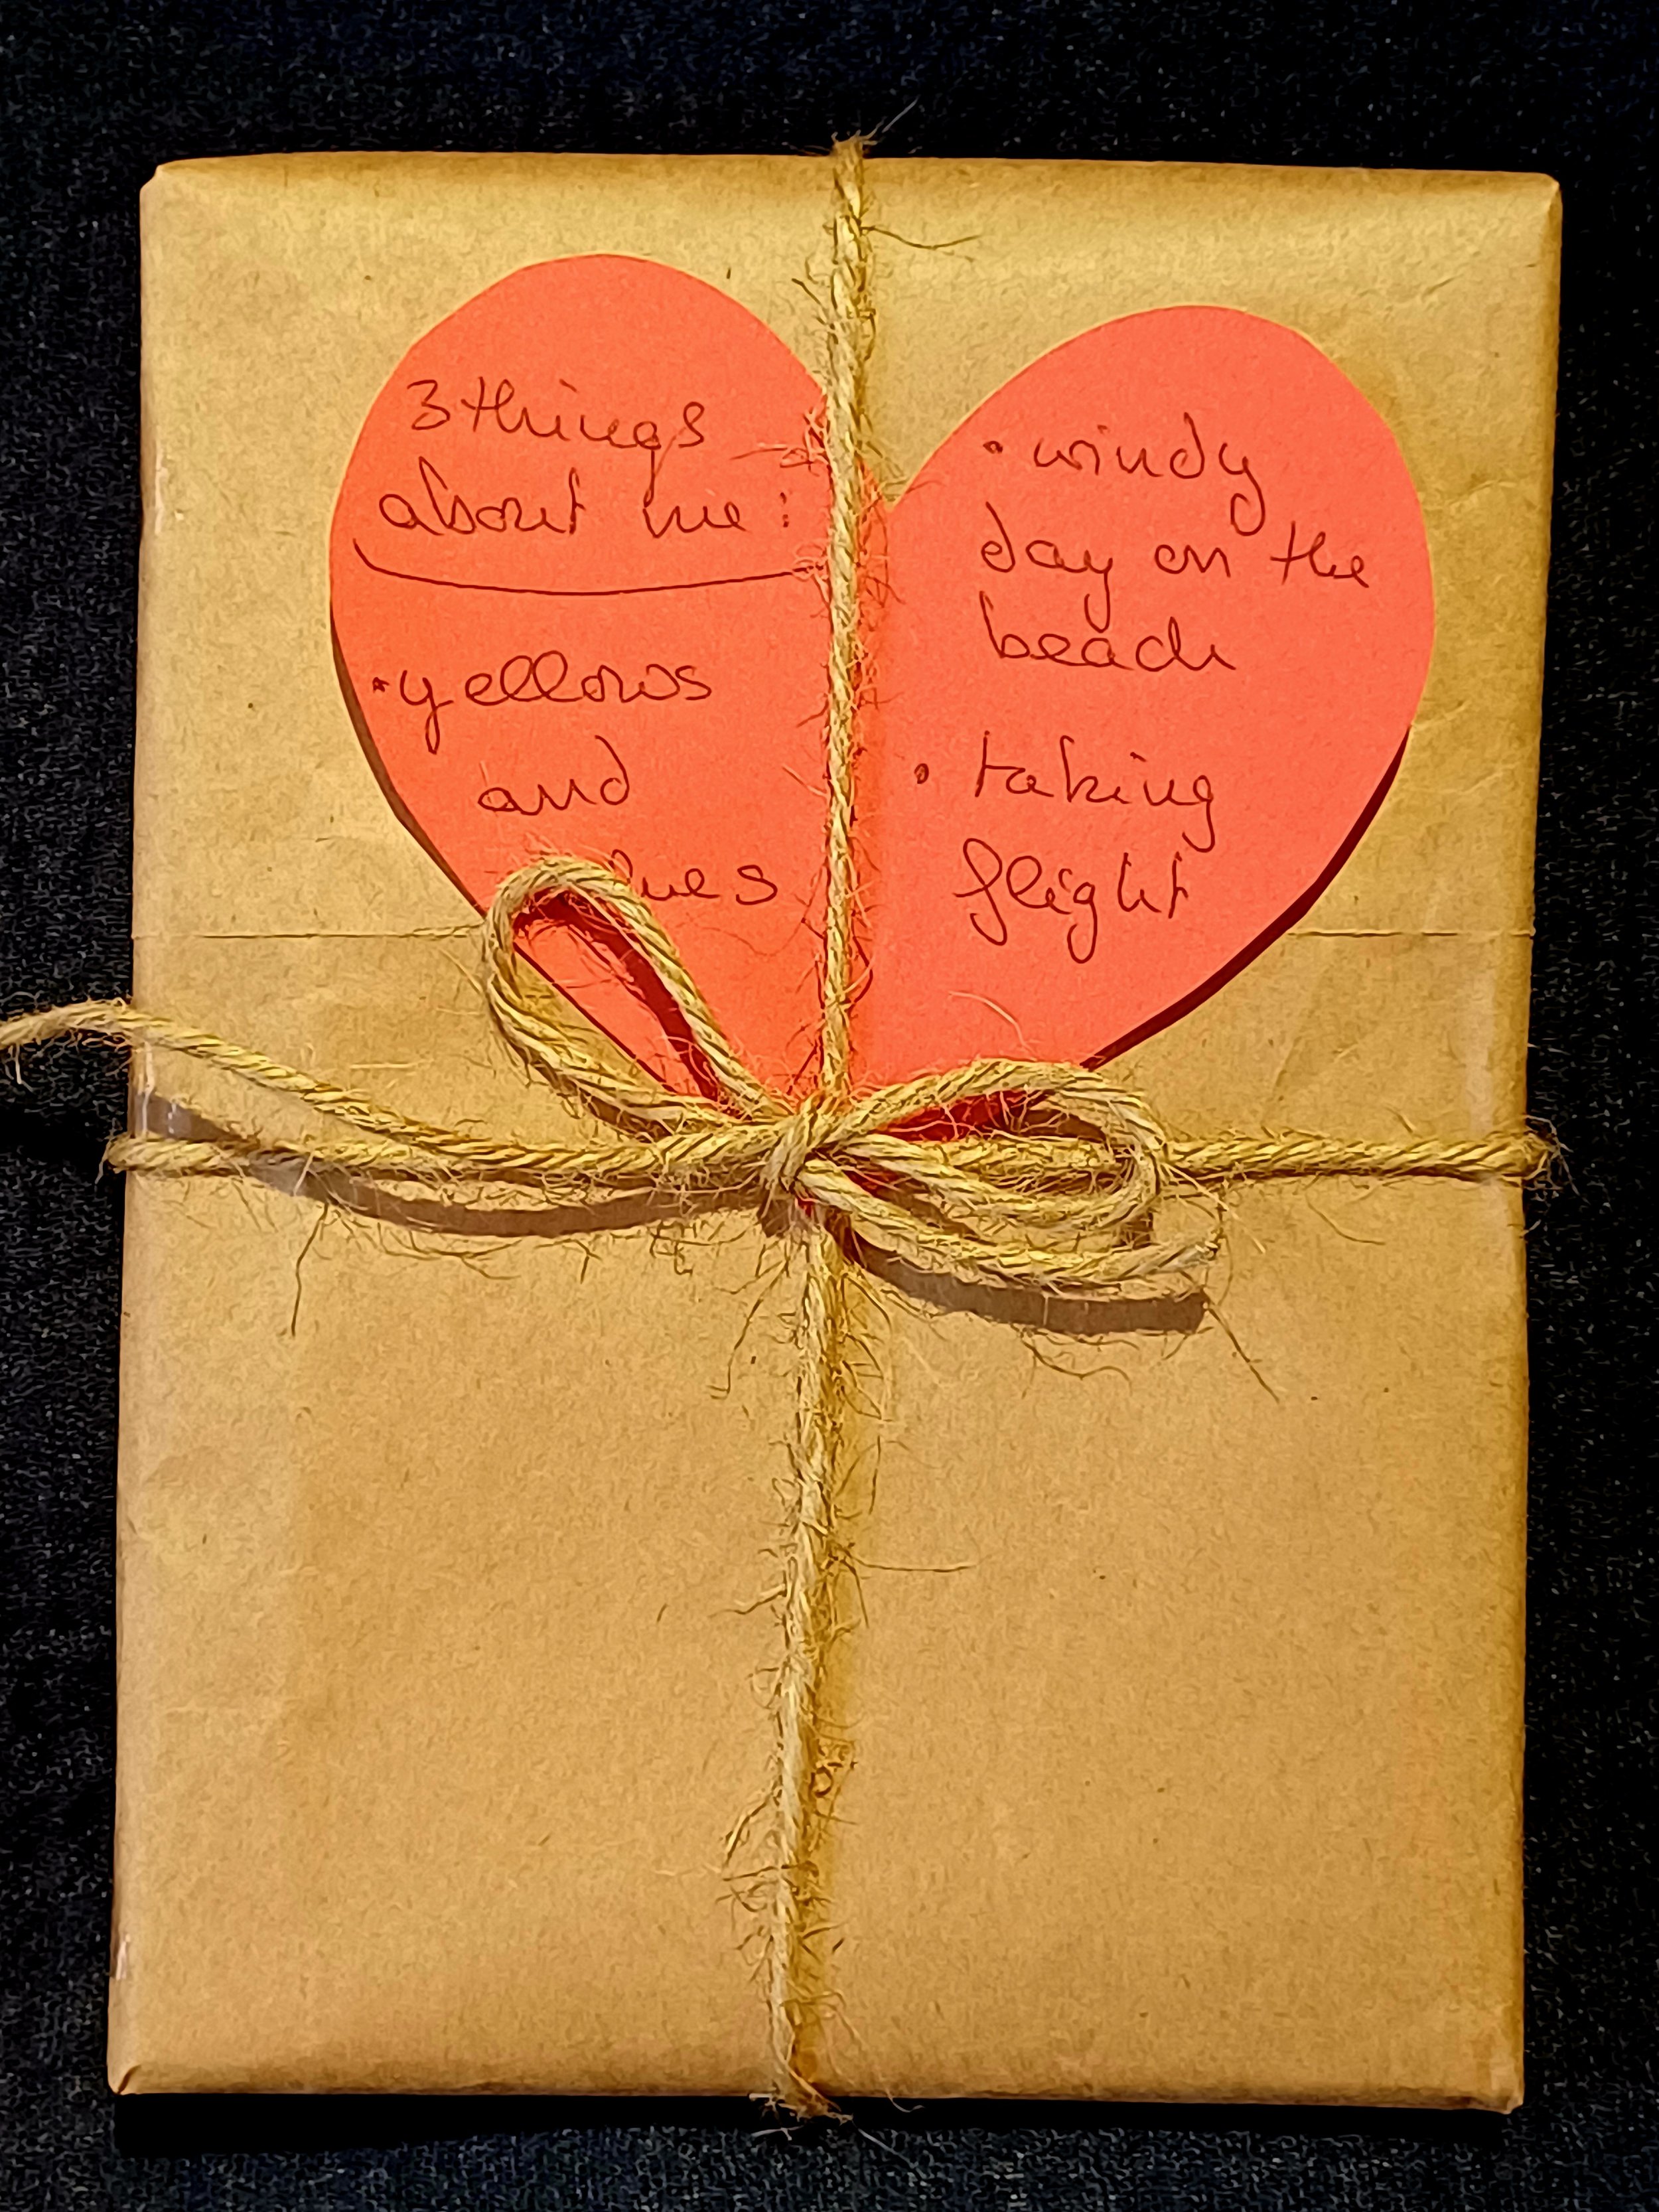 3 things
about me:
• yellows
and
• windy
day on the
beach
• taking
flight